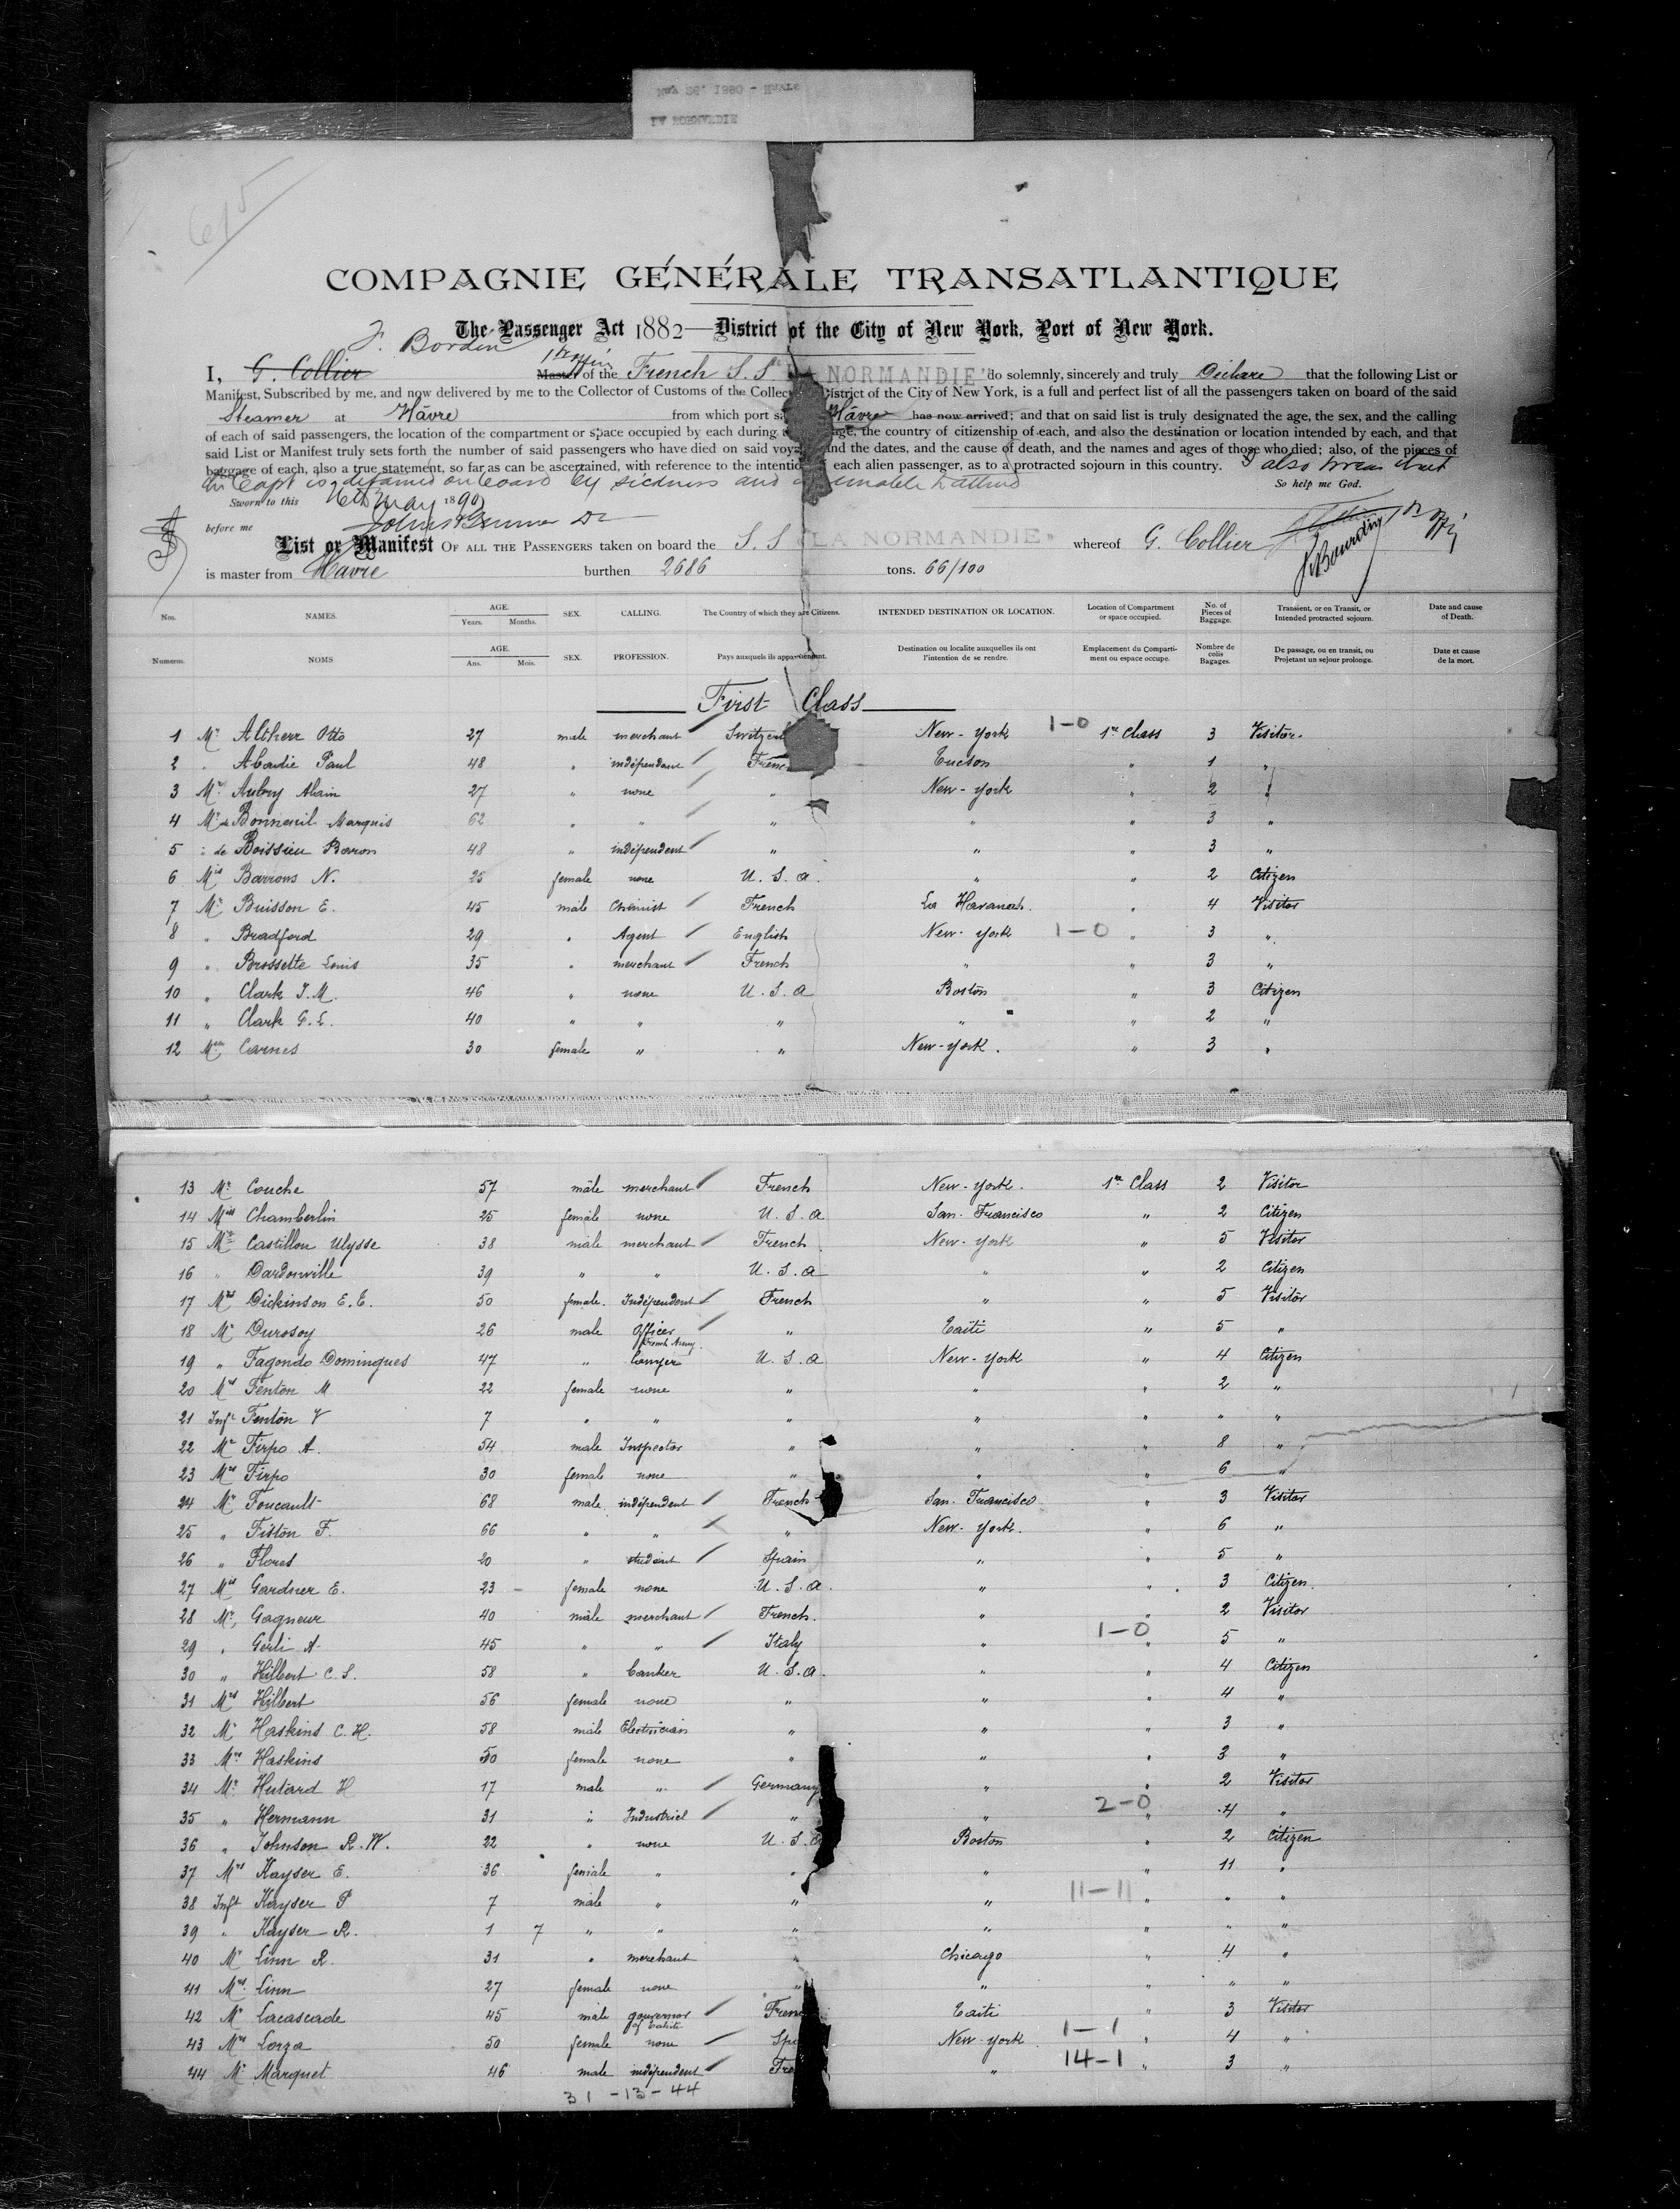 615
COMPAGNIE GÉNÉRALE TRANSATLANTIQUE
The Passenger Act 1882—District of the City of New York, Port of New York.
I, G. Collier Master of the French S. S. LA NORMANDIE do solemnly, sincerely and truly Declare that the following List or
Manifest, Subscribed by me, and now delivered by me to the Collector of Customs of the Collection District of the City of New York, is a full and perfect list of all the passengers taken on board of the said
Steamer at Hâvre from which port Hâvre has now arrived; and that on said list is truly designated the age, the sex, and the calling
of each of said passengers, the location of the compartment or space occupied by each during the country of citizenship of each, and also the destination or location intended by each, and that
said List or Manifest truly sets forth the number of said passengers who have died on said voyage and the dates, and the cause of death, and the names and ages of those who died; also, of the pieces of
baggage of each, also a true statement, so far as can be ascertained, with reference to the intention each alien passenger, as to a protracted sojourn in this country. I also swear that
the Capt is detained on board by sickness and unable to attend So help me God.
Sworn to this 26th May 1890
before me
List or Manifest OF ALL THE PASSENGERS taken on board the S. S LA NORMANDIE whereof G. Collier
is master from Havre burthen 2686 tons. 66/100
Nos. NAMES. AGE. Years. Months. SEX. CALLING. The Country of which they are Citizens. INTENDED DESTINATION OR LOCATION. Location of Compartment or space occupied. No. of Pieces of Baggage. Transient, or on Transit, or Intended protracted sojourn. Date and cause of Death.
Numeros. NOMS AGE. Ans. Mois. SEX. PROFESSION. Pays auxquels ils appartiennent. Destination ou localite auxquelles ils ont l'intention de se rendre. Emplacement du Compartiment ou espace occupe. Nombre de colis Bagages. De passage, ou en transit, ou Projetant un sejour prolonge. Date et cause de la mort.
First Class
1 Mr Altherr Otto 27 male merchant New-York 1-0 1re Class 3 Visitor
2 " Abadie Paul 48 " indépendant Tucson " 1 "
3 Mr Aubry Alain 27 " none " New-York " 2 "
4 Mr de Bonneuil Marquis 62 " " " " " 3 "
5 " de Boissieu Baron 48 " indépendent " " " 3 "
6 Mis Barrows N. 25 female none U. S. a. " " 2 Citizen
7 Mr Buisson E. 45 male Chemist French La Havanah. " 4 Visitor
8 " Bradford 29 " Agent English New-York 1-0 " 3 "
9 " Brossette Louis 35 " merchant French " " 3 "
10 " Clark J. M. 46 " none U. S. a Boston " 3 Citizen
11 " Clark G. E. 40 " " " " " 2 "
12 Mme Carnes 30 female " " New-York. " 3 "
13 Mr Couche 57 mâle merchant French New-York. 1re Class 2 Visitor
14 Miss Chamberlin 25 female none U. S. a San. Francisco " 2 Citizen
15 Mr Castillon Ulysse 38 male merchant French New-York " 5 Visitor
16 " Dardonville 39 " " U. S. a " " 2 Citizen
17 Mrs Dickinson E. E. 50 female. Indépendent French " " 5 Visitor
18 Mr Durosoy 26 male Officer French Army. " Taïti " 5 "
19 " Fagondo Domingues 47 " lawyer U. S. a New-York " 4 Citizen
20 Mrs Fenton M 22 female none " " " 2 "
21 Inft Fenton V 7 " " " " " " "
22 Mr Firpo A. 54 male Inspector " " " 8 "
23 Mrs Firpo 30 female none " " " 6 "
24 Mr Foucault 68 male indépendent French San. Francisco " 3 Visitor
25 " Fiston F. 66 " " " New-York. " 6 "
26 " Flores 20 " student Spain " " 5 "
27 Mis Gardner E. 23 female none U. S. a. " " 3 Citizen.
28 Mr Gagneur 40 male merchant French. " " 2 Visitor
29 " Gerli A. 45 " " Italy " 1-0 " 5 "
30 " Hilbert C. S. 58 " banker U. S. a. " " 4 Citizen
31 Mrs Hilbert 56 female none " " " 4 "
32 Mr Haskins C. H. 58 male Electrician " " " 3 "
33 Mrs Haskins 50 female none " " " 3 "
34 Mr Hutard H 17 male " Germany " " 2 Visitor
35 " Hermann 31 " Industriel " " 2-0 " 4 "
36 " Johnson R. W. 22 " none U. S. a Boston " 2 Citizen
37 Mrs Kayser E. 36 female " " " " 11 "
38 Inft Kayser P 7 male " " " 11-11 " " "
39 " Kayser R. 1 7 " " " " " " "
40 Mr Linn R. 31 " merchant " Chicago " 4 "
41 Mrs Linn 27 female none " " " " "
42 Mr Lacascade 45 male gouvernor of Tahiti Taïti " 3 Visitor
43 Mrs Lorza 50 female none New-York 1-1 " 4 "
44 Mr Marquet 46 male indépendent " 14-1 " 3 "
31-13-44